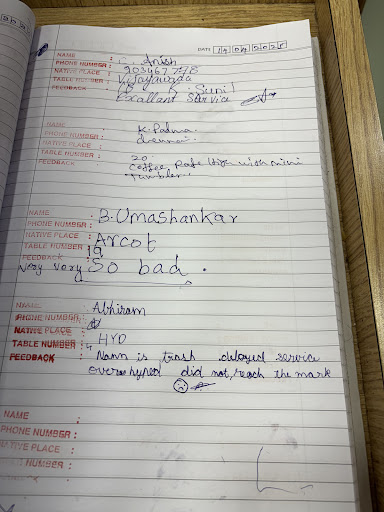 DATE 14 04 2025
NAME : C. Anish
PHONE NUMBER :
NATIVE PLACE : Vijayawada
TABLE NUMBER : 18 K. Sunil
FEEDBACK : Excellant Service
NAME : K. Padma.
PHONE NUMBER :
NATIVE PLACE : Chennai.
TABLE NUMBER : 20
FEEDBACK : Coffee Rate High with mini
tumbler.
NAME : B. Umashankar
PHONE NUMBER :
NATIVE PLACE : Arcot
TABLE NUMBER : 19
FEEDBACK :
Very Very So bad.
NAME : Abhiram
PHONE NUMBER :
NATIVE PLACE : HYD
TABLE NUMBER : 4
FEEDBACK : Naan is trash delayed service
overhyped did not reach the mark
NAME :
PHONE NUMBER :
NATIVE PLACE :
NUMBER :